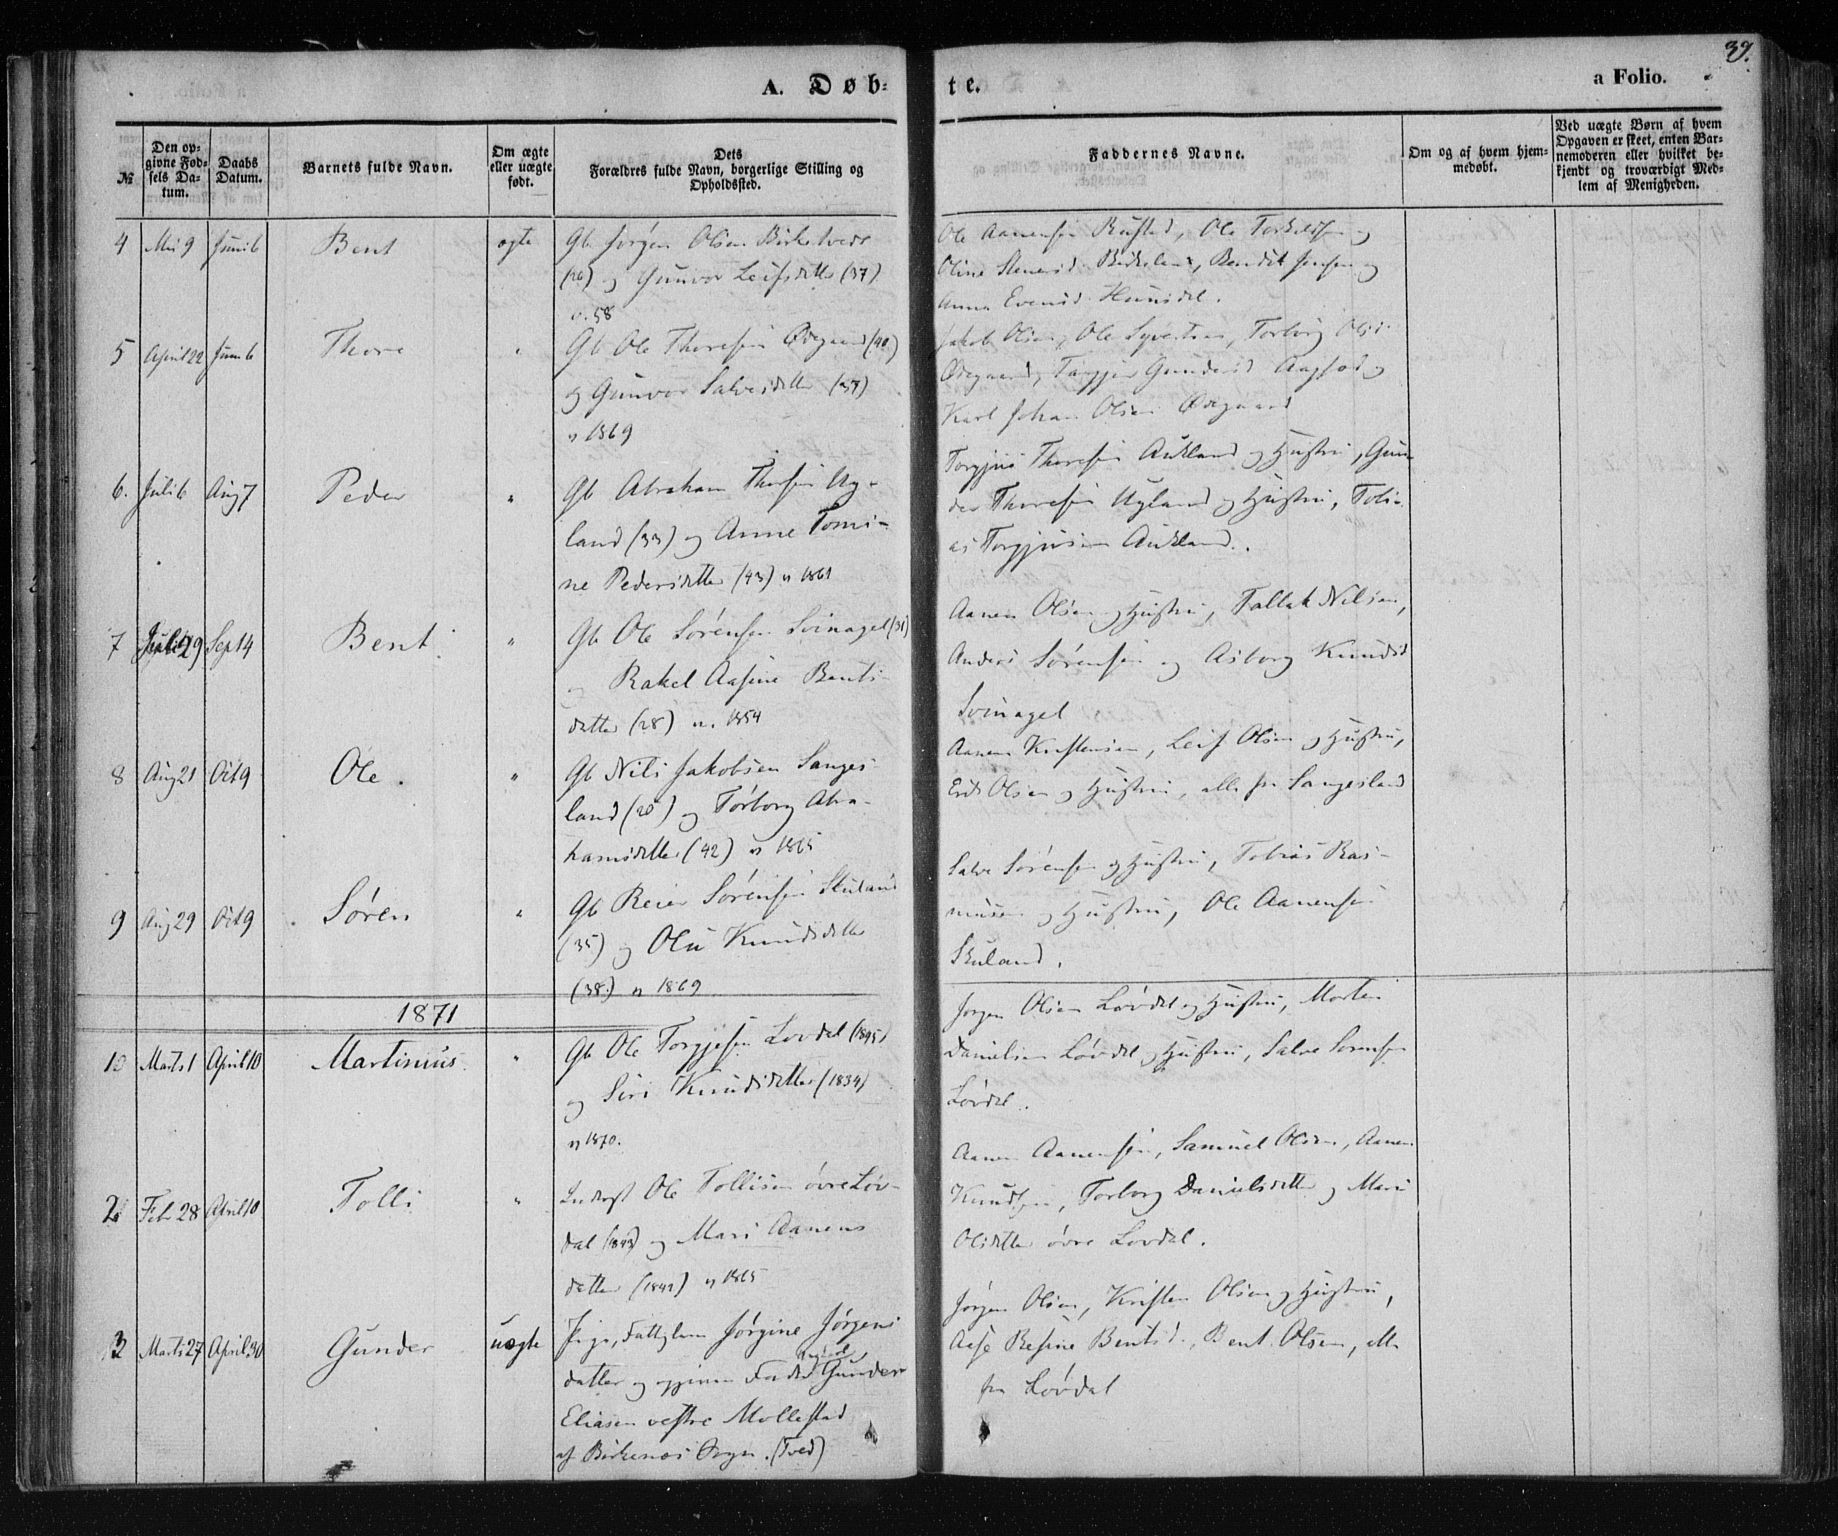 39.
A. Døb-
te.
a Folio.
№
Den op-
givne Fød-
sels Da-
tum.
Daabs
Datum.
Barnets fulde Navn.
Om ægte
eller uægte
født.
Dets
Forældres fulde Navn, borgerlige Stilling og
Opholdssted.
Faddernes Navne.
Om og af hvem hjem-
medøbt.
Ved uægte Børn af hvem
Opgaven er skeet, enten Bar-
nemoderen eller hvilket be-
kjendt og troværdigt Med-
lem af Menigheden.
4 Mai 9 Juni 6 Bent ægte Gb Jørgen Olsen Birketvedt
(26) og Gunvor Leifsdatter (37)
v. 58
Ole Aanensen Rustad, Ole Torkildsen og
Oline Stenersd. Birkeland, Bendik Jensen og
Anna Evensd.
5 April 22 Juni 6 Thore " Gb Ole Thoresen Ødegaard (40)
og Gunvor Salvesdatter (37)
v 1869
Jakob Olsen, Ole Syvertsen, Torborg Olsd.
Ødegaard, Targjer Gundersd
Karl Johan Olsen Ødegaard
6. Juli 6 Aug 7 Peder " Gb Abraham Thorsen Ug-
land (33) og Anne Tomi-
ne Pedersdatter (43) v 1861
Torgjus Thoresen Aukland og Hustru, Gun-
der Thoresen Ugland og Hustru, Tobi-
as Torgjusen Aukland.
7 Juli 29 Sept 4 Bent " Gb Ole Sørensen Svinagel (31)
og Rakel Aasine Bents-
datter (28) v. 1854
Aanen Olsen og Hustru, Tallak Nilsen,
Anders Sørensen og Asborg Knudsd
Svinagel
8 Aug 21 Oct 9 Ole. " Gb Nils Jakobsen Sanges-
land (28) og Torborg Abra-
hamsdatter (42) v 1865
Aanen Kristensen, Leif Olsen og Hustru,
Erik Olsen og Hustru, alle fra Sangesland
9 Aug 29 Oct 9 Søren " Gb Reier Sørensen Skuland
(35) og Olu Knudsdatter
(38.) v 1869
Salve Sørensen og Hustru, Tobias Ras-
musen og Hustru, Ole Aanensen
Skuland.
1871
1 Marts 1 April 10 Martinius " Gb Ole Torgjusen Lovdal (1845)
og Siri Knudsdatter (1834)
v 1870.
Jørgen Olsen Løvdal og Hustru, Morten
Danielsen Løvdal og Hustru, Salve Sørensen
Løvdal.
2 Febr 28 April 10 Tolli " Inderst Ole Tollisen øvre Løv-
dal (1843) og Mari Aanens
datter (1842) v 1865
Aanen Aanensen, Samuel Olsen, Aanen
Knudsen, Torborg Danielsdatter og Mari
Olsdatter øvre Lovdal.
3 Marts 27 April 30 Gunder uægte Pige, Fattiglem Jørgine Jørgens
datter og Gunder
Eliasen vestre Mollestad
af Birkenes Sogn. (Tved)
Jørgen Olsen, Kristen Olsen og Hustru,
Aase Resine Bentsd., Bent Olsen, alle
fra Løvdal